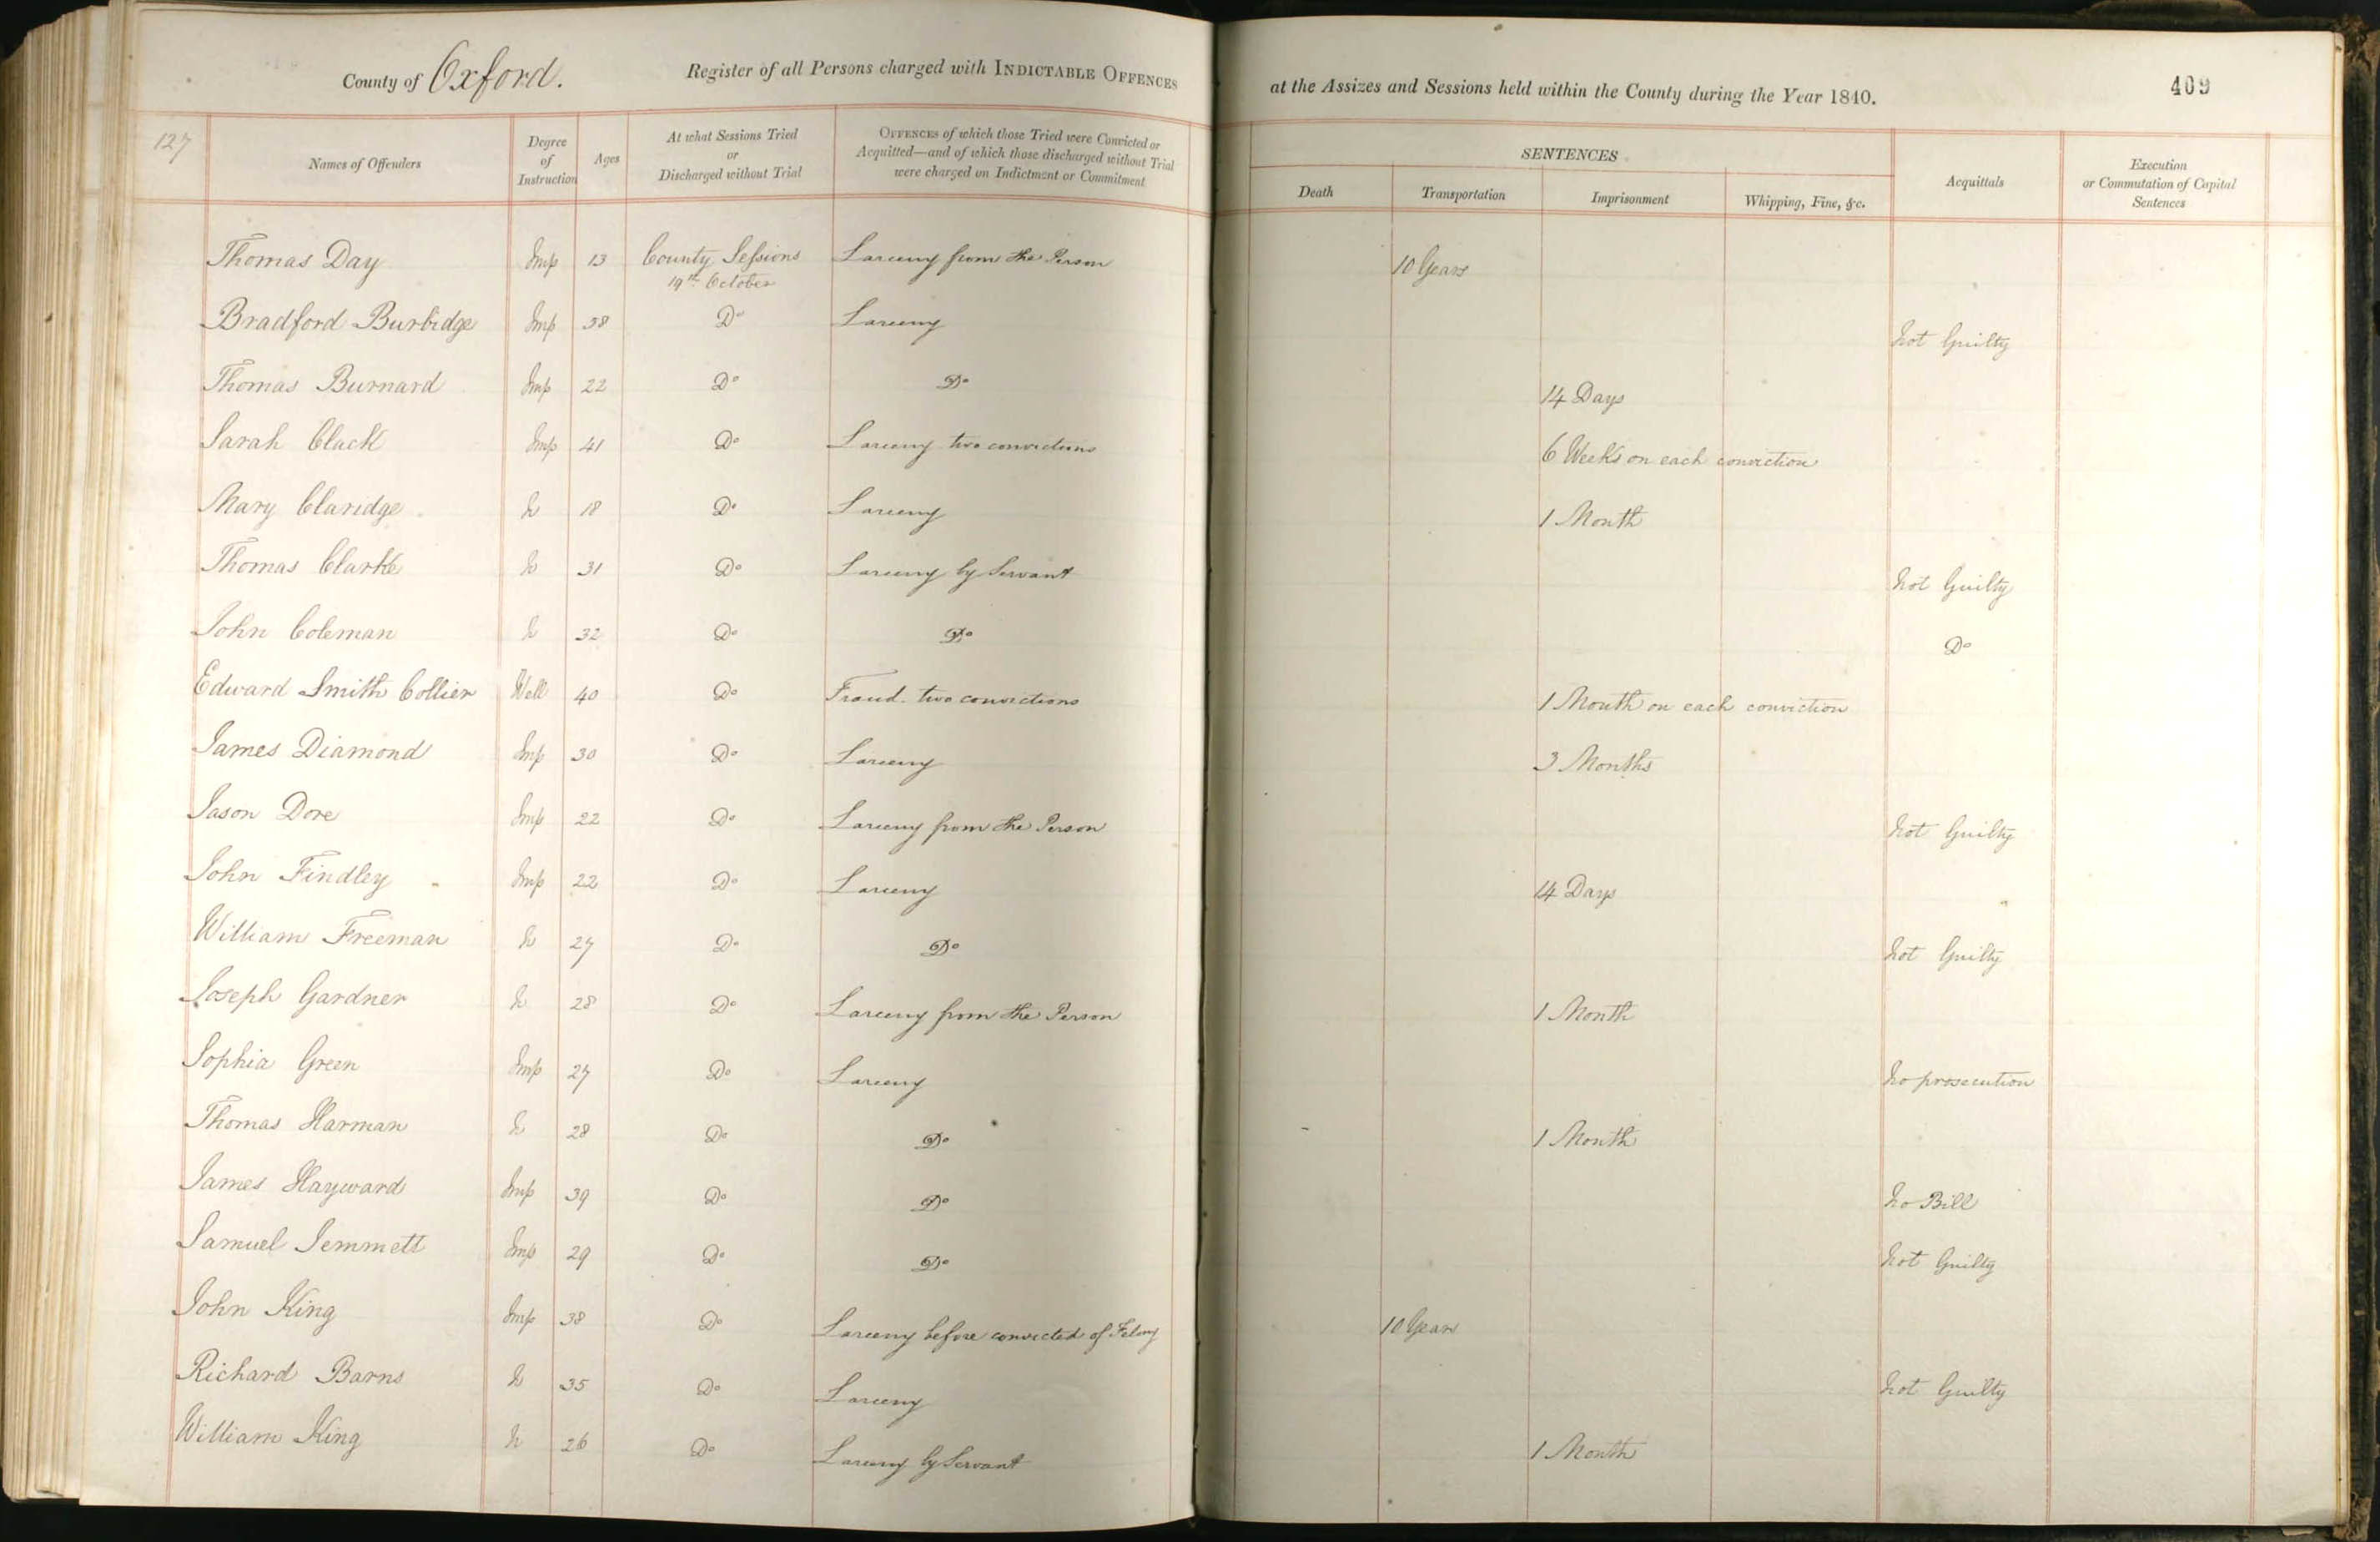 County of Oxford. Register of all Persons charged with INDICTABLE OFFENCES at the Assizes and Sessions held within the County during the Year 1840. 409
127
Names of Offenders
Degree of Instruction
Ages
At what Sessions Tried or Discharged without Trial
OFFENCES of which those Tried were Convicted or Acquitted—and of which those discharged without Trial were charged on Indictment or Commitment
SENTENCES
Death
Transportation
Imprisonment
Whipping, Fine, &c.
Acquittals
Execution or Commutation of Capital Sentences
Thomas Day Imp 13 County Sessions 19th October Larceny from the Person 10 Years
Bradford Burbidge Imp 38 Do Larceny Not Guilty
Thomas Burnard Imp 22 Do Do 14 Days
Sarah Clack Imp 41 Do Larceny two convictions 6 Weeks on each conviction
Mary Claridge N 18 Do Larceny 1 Month
Thomas Clarke N 31 Do Larceny by Servant Not Guilty
John Coleman N 32 Do Do Do
Edward Smith Collier Well 40 Do Fraud. two convictions 1 Month on each conviction
James Diamond Imp 30 Do Larceny 3 Months
Jason Dore Imp 22 Do Larceny from the Person Not Guilty
John Findley Imp 22 Do Larceny 14 Days
William Freeman N 27 Do Do Not Guilty
Joseph Gardner N 28 Do Larceny from the Person 1 Month
Sophia Green Imp 27 Do Larceny No prosecution
Thomas Harman N 28 Do Do 1 Month
James Hayward Imp 39 Do Do No Bill
Samuel Jemmett Imp 29 Do Do Not Guilty
John King Imp 38 Do Larceny before convicted of Felony 10 Years
Richard Barns N 35 Do Larceny Not Guilty
William King N 26 Do Larceny by Servant 1 Month